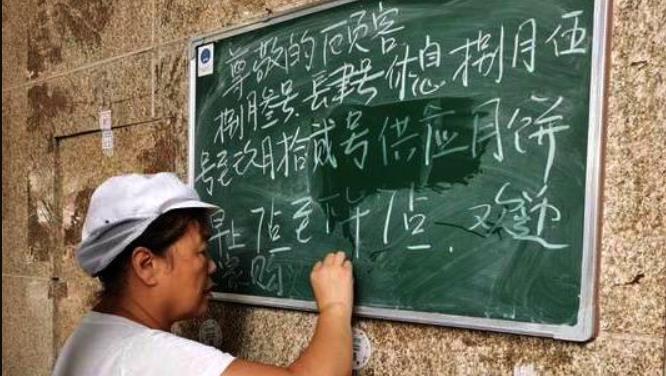 尊敬的顾客
捌月叁号.肆号休息 捌月伍
号至玖月拾贰号供应月饼
早上7点至下午7点.欢迎
购